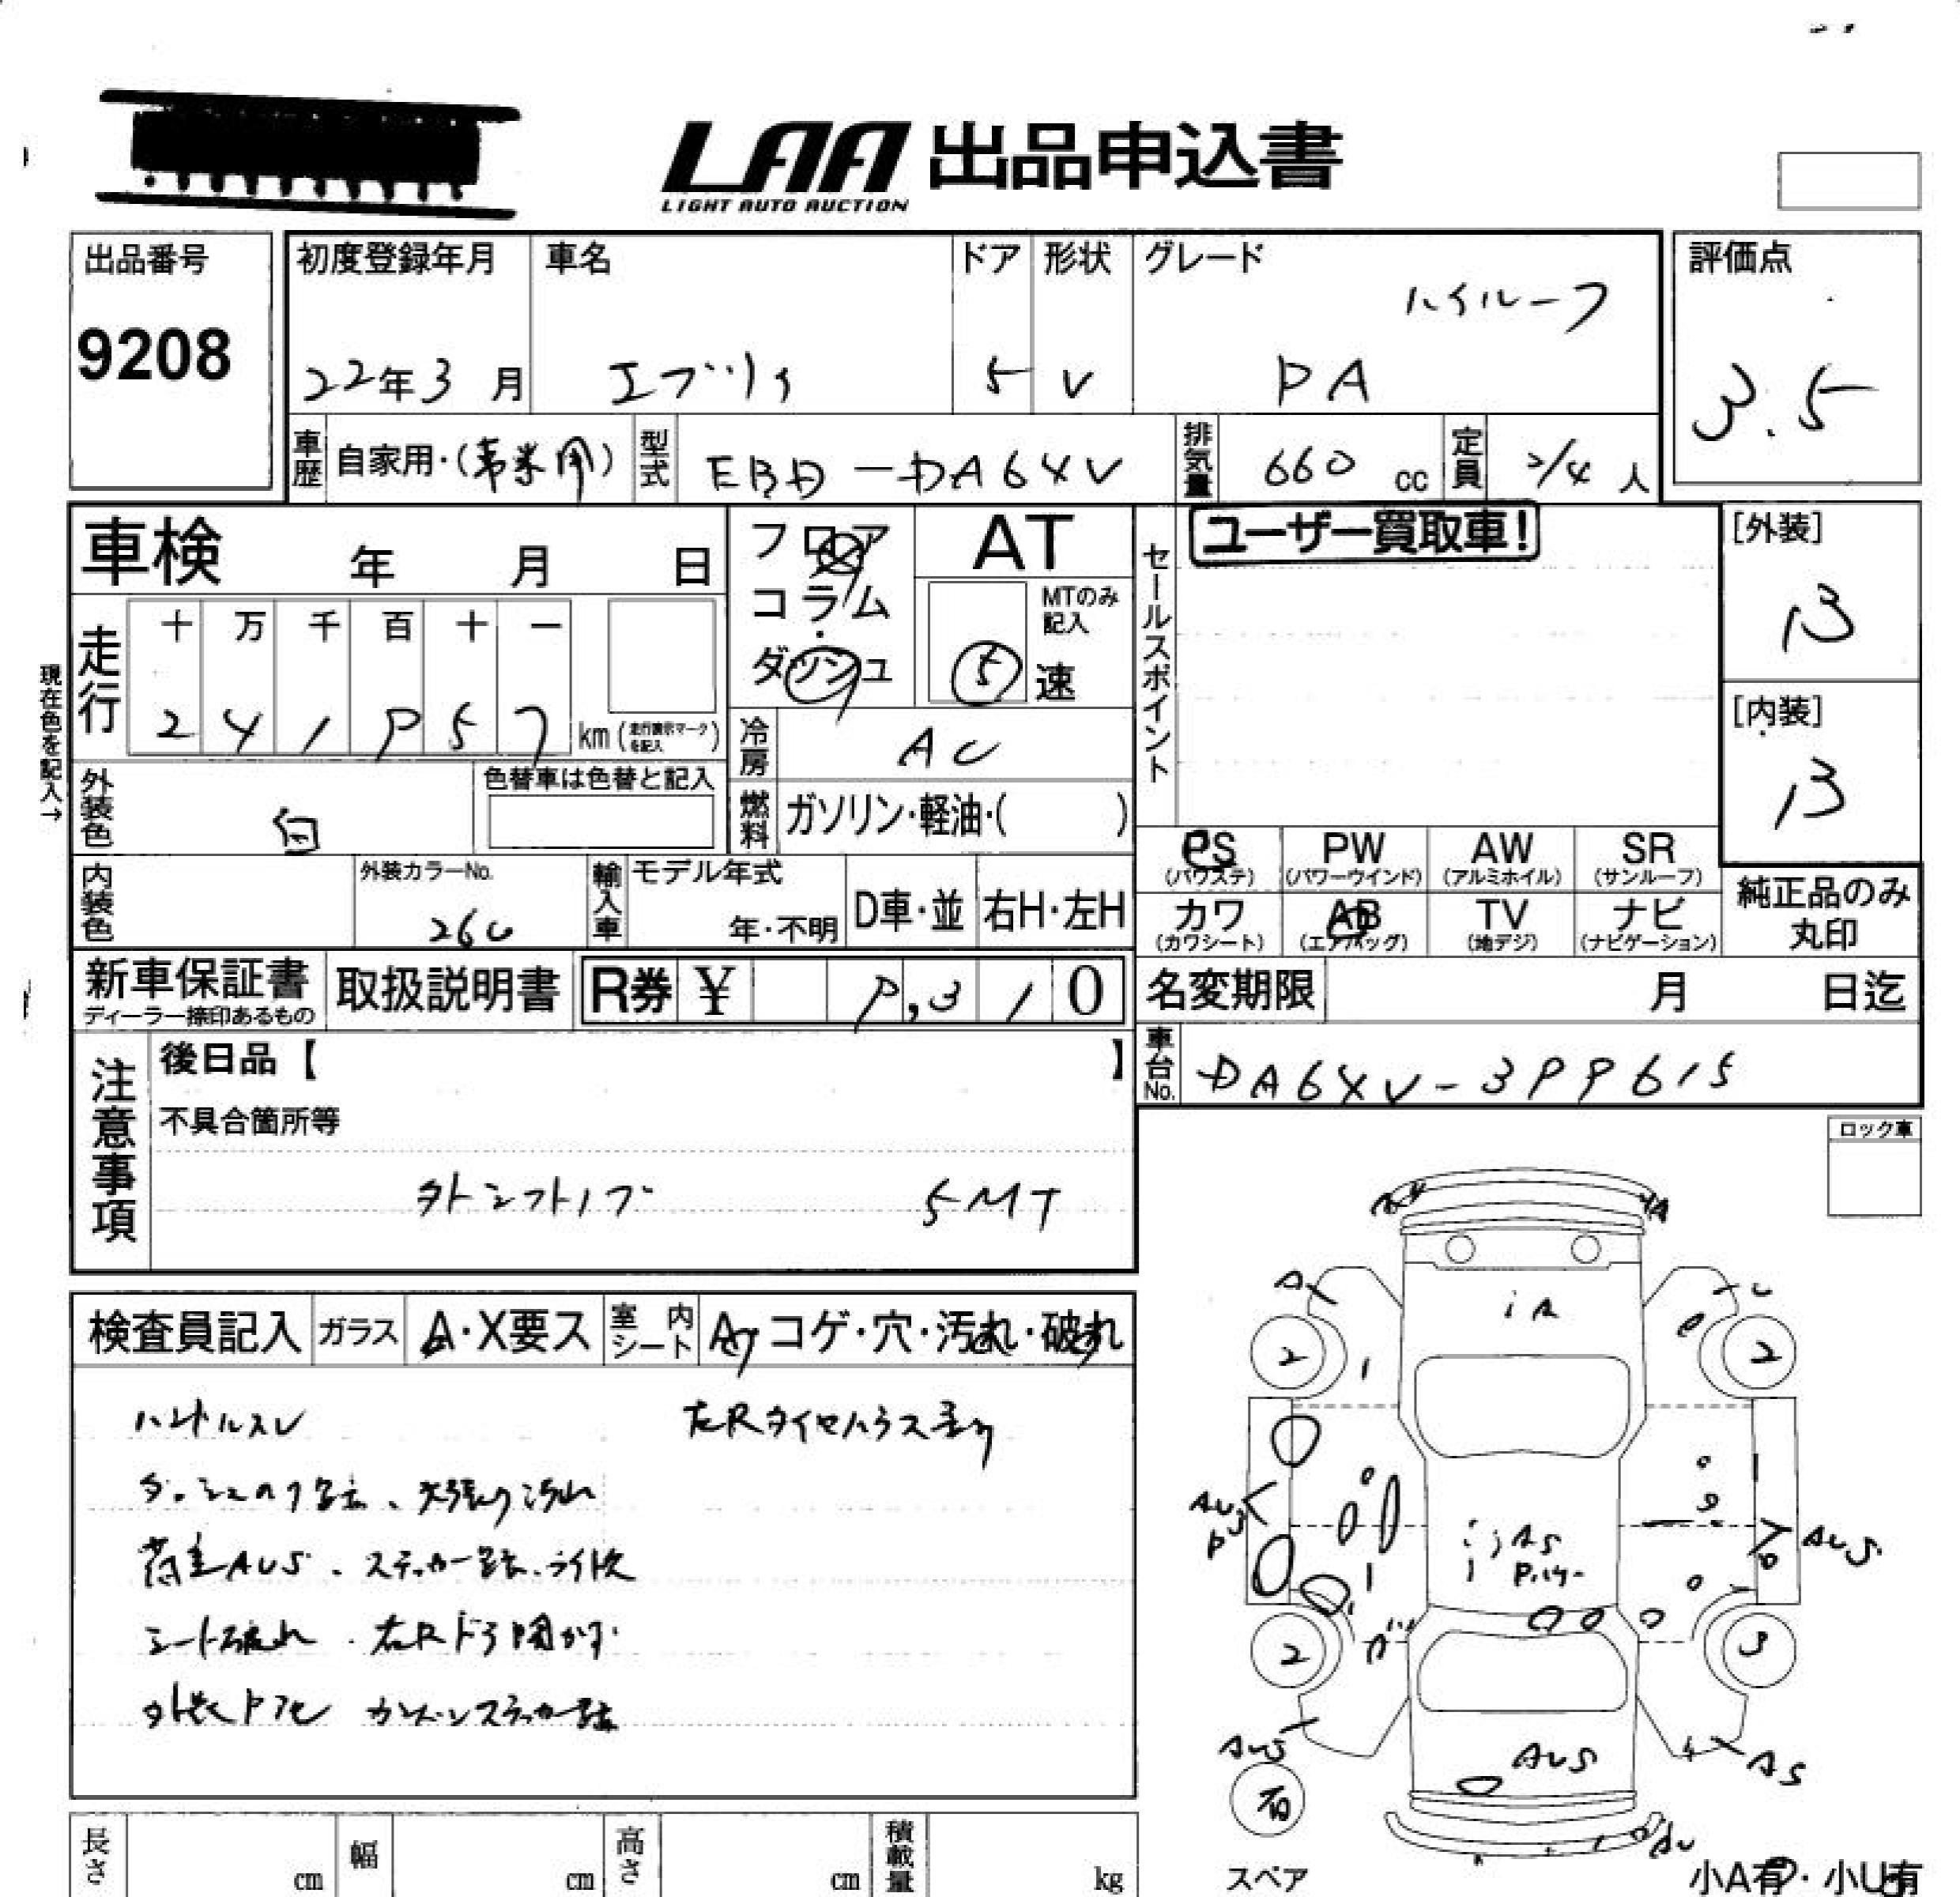 LAA 出品申込書
LIGHT AUTO AUCTION
出品番号
9208
初度登録年月
22年3月
車名
エブリイ
ドア
5
形状
V
グレード
ハイルーフ
PA
評価点
3.5
車歴
自家用・(事業用)
型式
EBD-DA64V
排気量
660 cc
定員
2/4 人
車検 年 月 日
フロア
コラム
ダッシュ
AT
MTのみ記入
5 速
セールスポイント
ユーザー買取車!
[外装]
B
[内装]
B
現在色を記入→
走行
十 万 千 百 十 一
2 4 1 9 5 7 km (走行表示マークを記入)
冷房
AC
外装色
白
色替車は色替と記入
燃料
ガソリン・軽油・( )
内装色
外装カラーNo.
26U
輸入車
モデル年式
年・不明
D車・並
右H・左H
PS (パワステ)
PW (パワーウインド)
AW (アルミホイル)
SR (サンルーフ)
カワ (カワシート)
AB (エアバッグ)
TV (地デジ)
ナビ (ナビゲーション)
純正品のみ
丸印
新車保証書
ディーラー捺印あるもの
取扱説明書
R券 ¥ 9,310
名変期限 月 日迄
注意事項
後日品【 】
不具合箇所等
外シフトノブ 5MT
車台No.
DA64V-399615
ロック車
検査員記入
ガラス
A・X要ス
室内シート
A コゲ・穴・汚れ・破れ
ハンドルスレ
天張り汚れ
荷室AUS、ステッカー跡、ライト欠
シート破れ、右Rドア開かず
A
U
A
iA
2
2
1
AUS
AS
P
AUS
2
3
AUS
AUS
AS
有
スペア
AU
小A有・小U有
長さ cm
幅 cm
高さ cm
積載量 kg